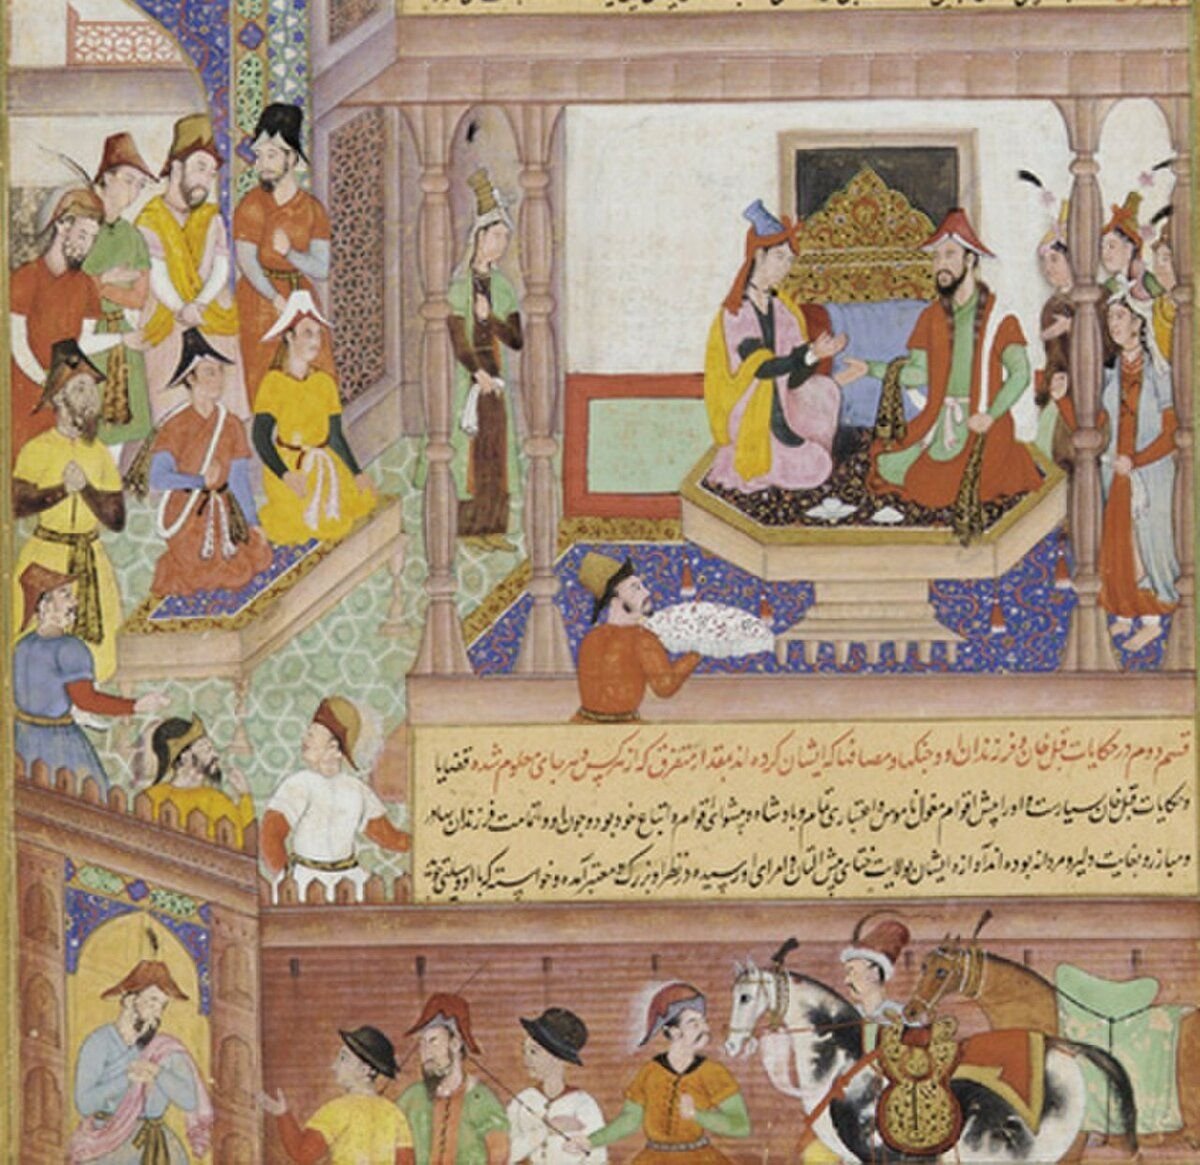 قسم دوم در حکایات قبل خان و فرزندان او و جنکها و مصافها که ایشان کرده اند بمقدار متفرق که از هرکس و هر جای معلوم شده قضایا
و حکایات قبل خان بسیارست و او را پیش اقوام مغول ناموس و اعتباری تمام و پادشاه و پیشوای اقوام و اتباع خود بود و چون او و تمامت فرزندان بهادر
و مبارز و بغایت دلیر و مردانه بوده اند آوازه ایشان ولایت ختای پیش التان و امرای او رسیده در نظر او بزرک و معتبر آمده و خواسته که با او